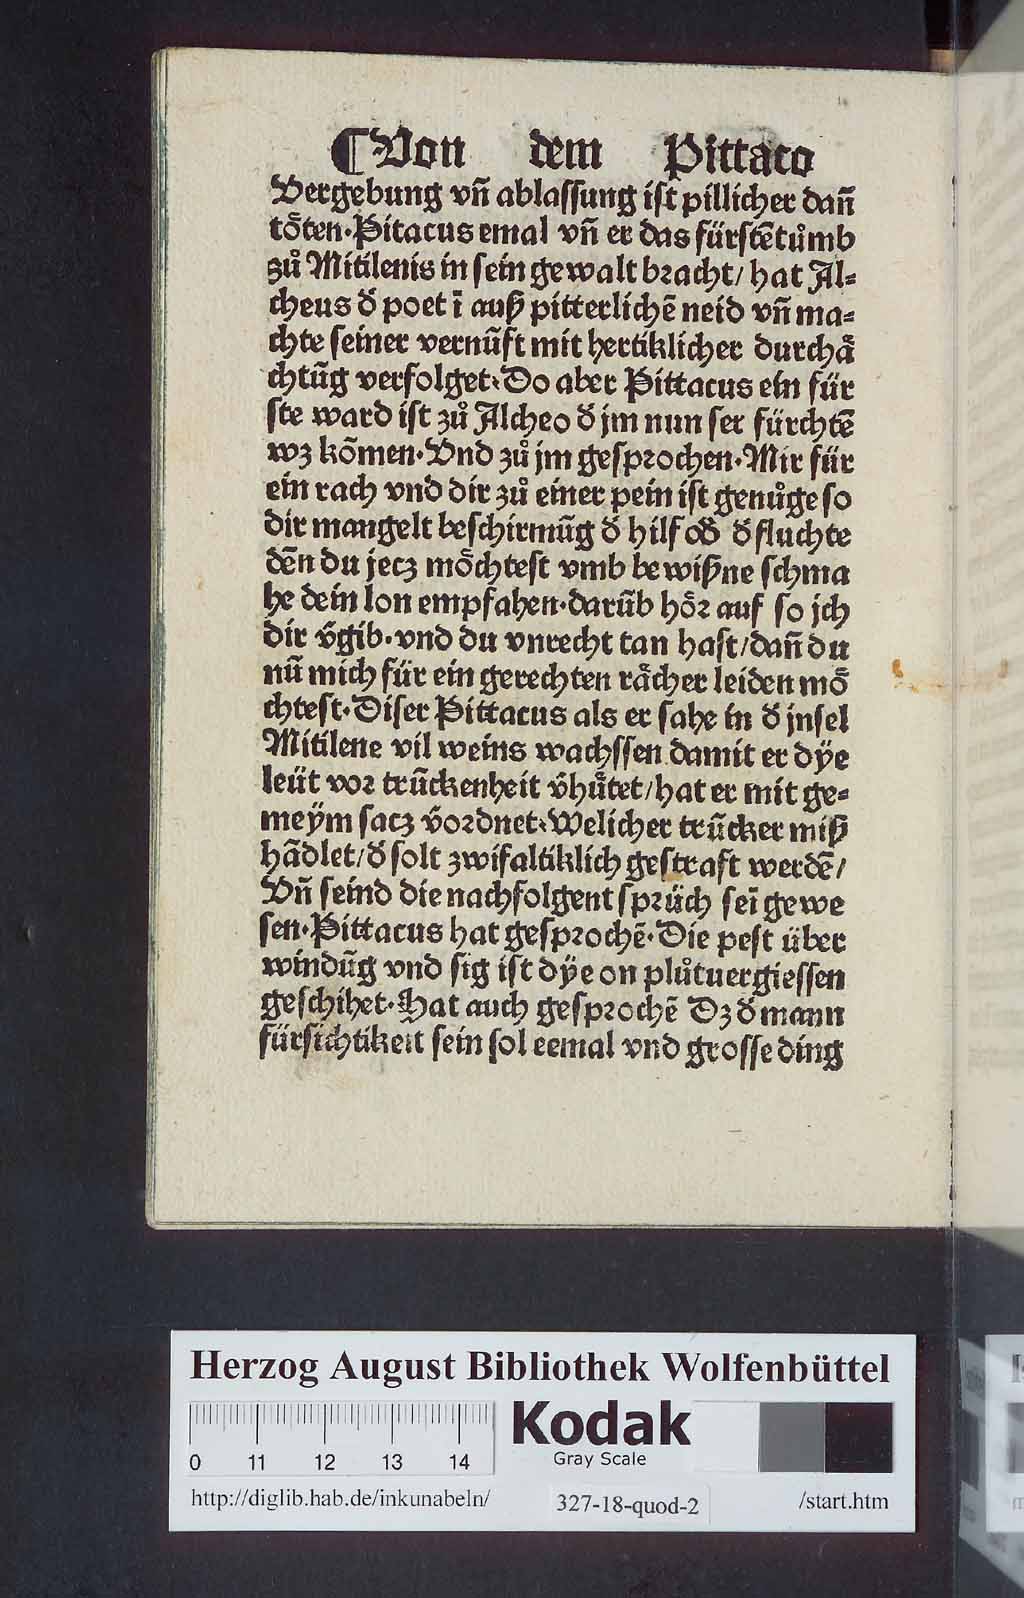 ¶Von dem Pittaco
Vergebung vñ ablassung ist pillicher dañ
toͤten·Pitacus emal vñ er das fürstētuͦmb
zuͦ Mitilenis in sein gewalt bracht/hat Al⸗
cheus đ poet ī auß pitterlichē neid vñ ma⸗
chte seiner vernūft mit hertiklicher durchaͤ
chtūg verfolget·Do aber Pittacus ein für
ste ward ist zuͦ Alcheo đ jm nun ser fürchtē
wz kōmen·Vnd zuͦ jm gesprochen·Mir für
ein rach vnd dir zuͦ einer pein ist genuͦge so
dir mangelt beschirmūg đ hilf ođ đ fluchte
dēn du jecz moͤchtest vmb bewißne schma
he dein lon empfahen·darūb hoͤr auf so jch
dir v̄gib·vnd du vnrecht tan hast/dañ du
nū mich für ein gerechten raͤcher leiden moͤ
chtest·Diser Pittacus als er sahe in đ jnsel
Mitilene vil weins wachssen damit er dÿe
leüt vor trūckenheit v̄huͤtet/hat er mit ge⸗
meÿm sacz v̄ordnet·Welicher trūcker miß
hādlet/đ solt zwifaltiklich gestraft werdē/
Vñ seind die nachfolgent sprüch seī gewe
sen·Pittacus hat gesprochē·Die pest über
windūg vnd sig ist dÿe on pluͦtuergiessen
geschihet·Hat auch gesprochē Dz đ mann
fürsichtikeit sein sol eemal vnd grosse ding
Herzog August Bibliothek Wolfenbüttel
Kodak
Gray Scale
0 11 12 13 14
http://diglib.hab.de/inkunabeln/ 327-18-quod-2 /start.htm